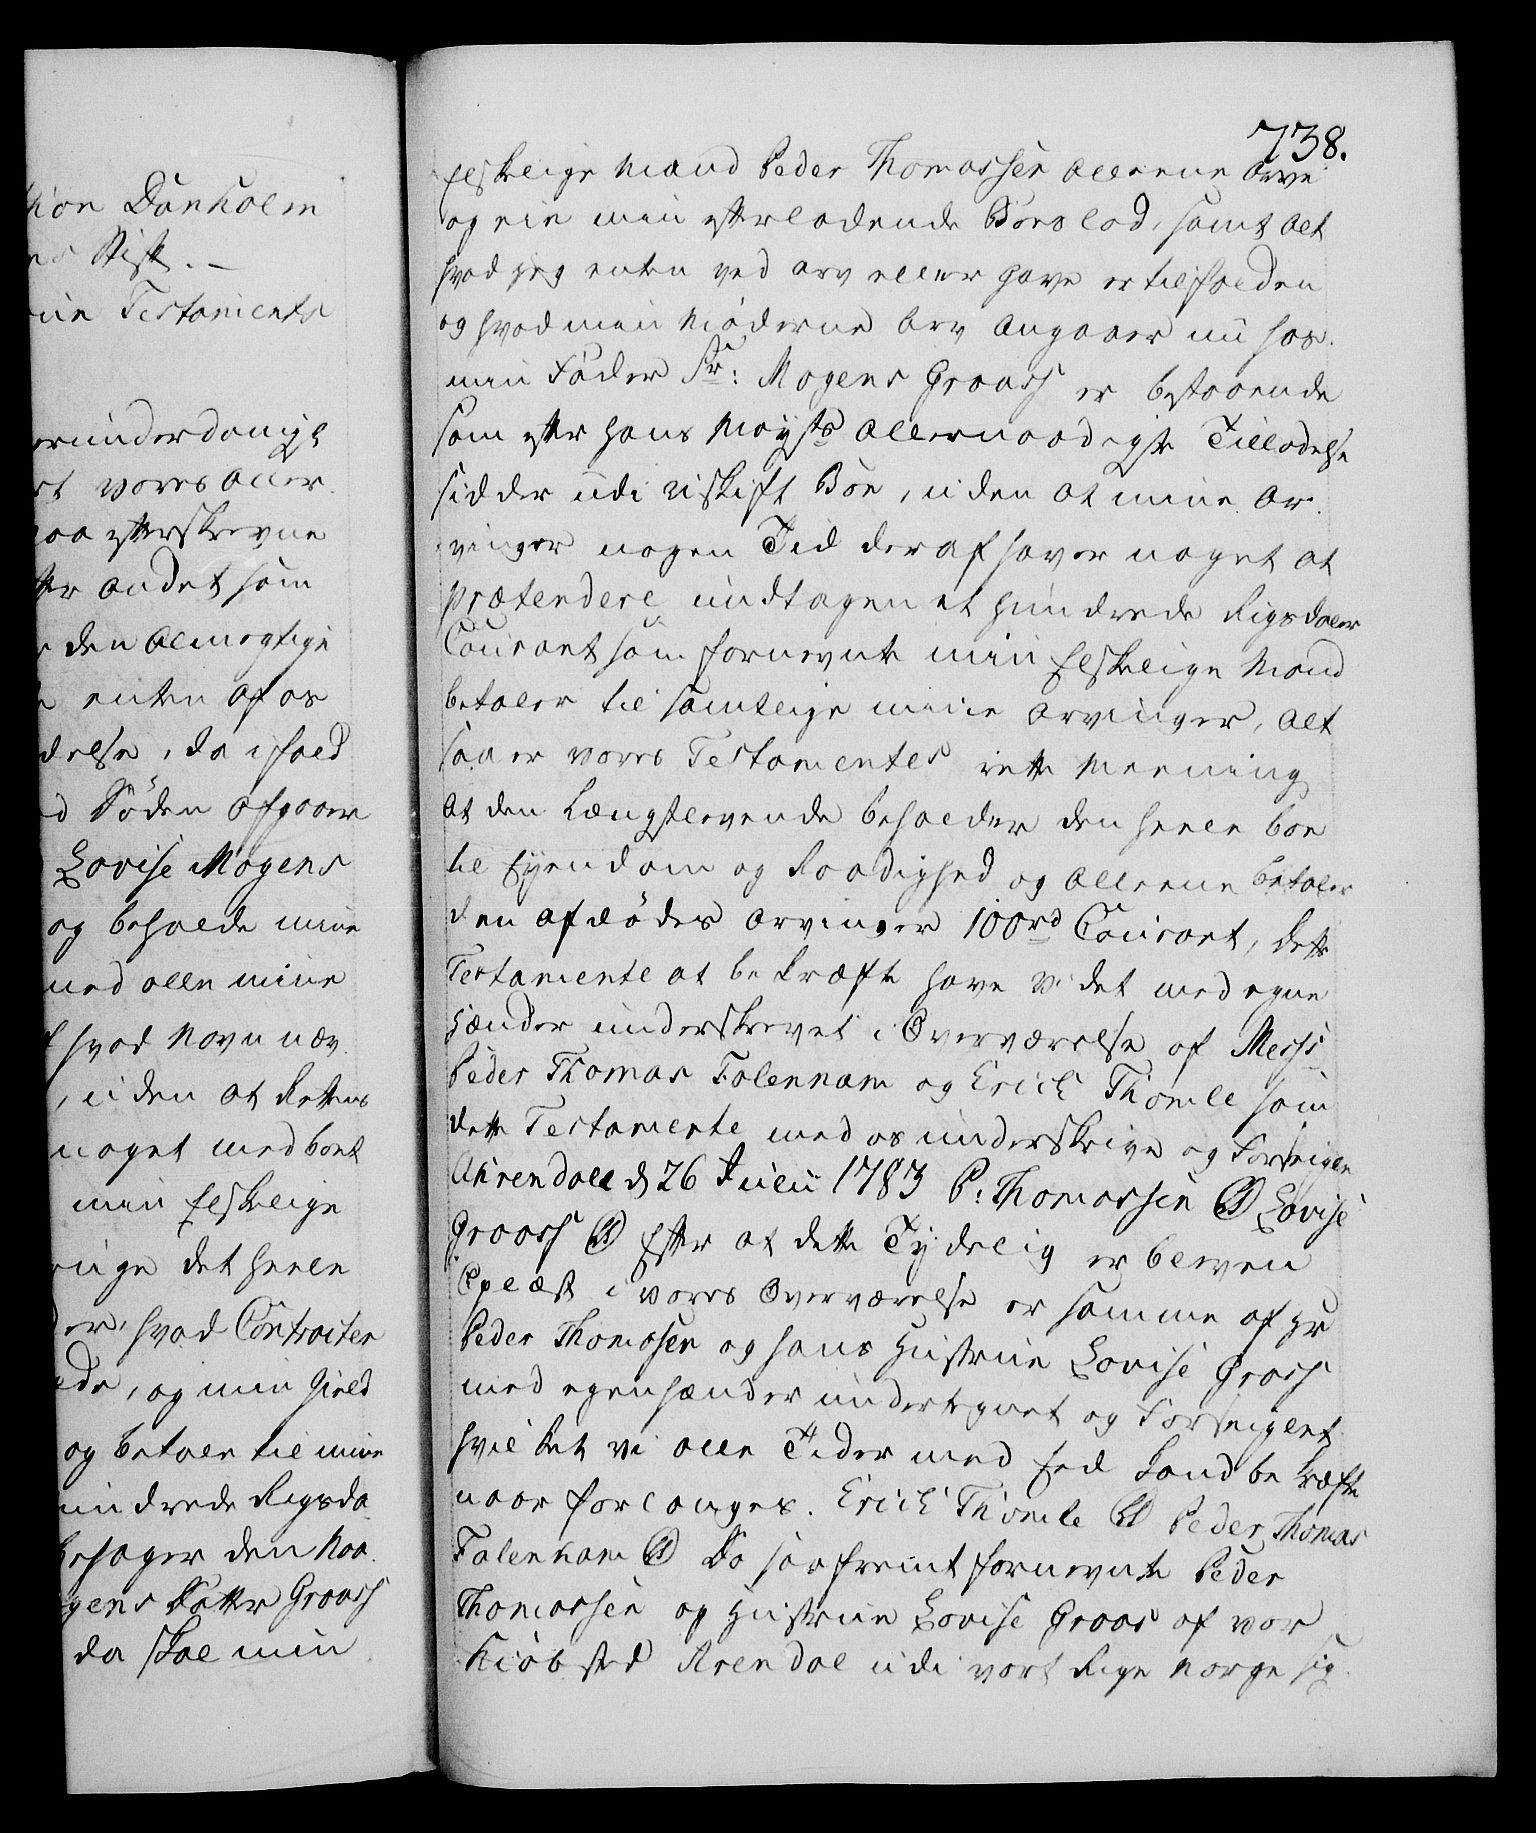 kion Danholm
ns Stift.
min Testamente
erunderdanigst
rt vores aller
paa efterskrevne
tter andet som
den Almegtige
enten af os
delse, da ifald
d Døden afgaaer
Lovise Mogens
og beholde mine
med alle mine
hvad Navn næv
, uden at Rettens
noget med boet
min Elskelige
ringe det heele
er, hvad Contracter
ede, og min Gield
og betale til mine
undrede Rigsda
besager den Naa
gens Datter Groass
da skal min
738.
Elskelige Mand Peder Thomassen alleene Arve
og eie min efterladende Boes lod, samt alt
hvad jeg enten ved arv eller gave er tilfalden
og hvad min Møderne Arv angaaer nu hos
min Fader Sr: Mogens Groass er bestaaende
som efter hans Mayts Allernaadigste Tilladelse
sidder udi uskift Boe, uden at mine Ar
vinger nogen Tid deraf haver noget at
prætendere undtagen et hundrede Rigsdaler
Courant som fornevnte min Elskelige Mand
betaler til samtlige mine Arvinger, alt
saa er vores Testamentes rette Meening
at den Længstlevende beholder den heele boe
til Eyendom og Raadighed og alleene betaler
den afdødes Arvinger 100rd Courant, dette
Testamente at bekræfte have vi det med egne
Hænder underskrevet i Overværelse af Messrs
Peder Thomas Falennam og Erich Thomle som
dette Testamente med os underskrive og Forseigle
Ahrendall d 26 Julii 1783 P: Thomassen (LS) Lovise
Groass (LS) Efter at dette Tydelig er bleven
Oplæst i vores Overværelse er samme af Hr
Peder Thomasen og hans Hustrue Lovise Groass
med egenhænder undertegnet og Forseiglet
hvilket vi alle Tider med Eed kand bekræfte
naar forlanges. Erich Thomle (LS) Peder Thomas
Falennam (LS) Da saafremt fornevnte Peder
Thomassen og Hustrue Lovise Groas af vor
Kiøbsted Arendal udi vort Rige Norge sig